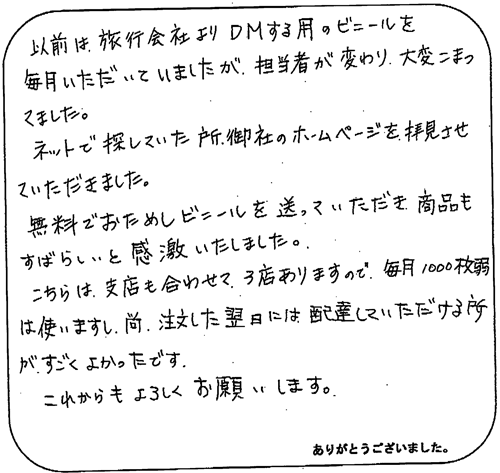 以前は、旅行会社より DMする用のビニールを
毎月いただいていましたが、担当者が変わり、大変こまっ
てました。
ネットで探していた所、御社のホームページを、拝見させ
ていただきました。
無料でおためしビニールを送っていただき、商品も
すばらしいと感激いたしました。
こちらは、支店も合わせて、3店ありますので、毎月1000枚弱
は使いますし、尚、注文した翌日には、配達していただける所
が、すごくよかったです。
これからもよろしくお願いします。
ありがとうございました。